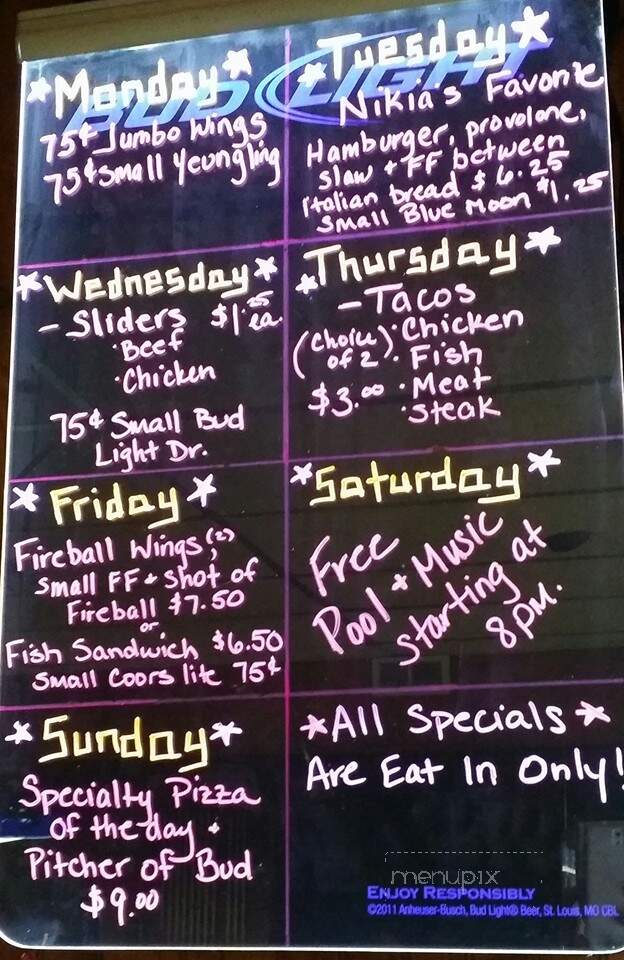 *Monday*
BUD LIGHT
75¢ Jumbo Wings
75¢ Small Yeungling
*Tuesday*
Nikia's Favorite
Hamburger, provolone,
slaw + FF between
Italian bread $6.25
Small Blue Moon $1.25
*Wednesday*
- Sliders $1.25 ea
·Beef
·Chicken
75¢ Small Bud
Light Dr.
*Thursday*
- Tacos
(Choice of 2)
·Chicken
·Fish
·Meat
·Steak
$3.00
*Friday*
Fireball Wings, (2)
Small FF + Shot of
Fireball $7.50
or
Fish Sandwich $6.50
Small Coors lite 75¢
*Saturday*
Free
Pool + Music
starting at
8pm.
*Sunday*
Specialty Pizza
Of the day +
Pitcher of Bud
$9.00
*All Specials*
Are Eat In Only!
menupix
ENJOY RESPONSIBLY
©2011 Anheuser-Busch, Bud Light® Beer, St. Louis, MO CBL